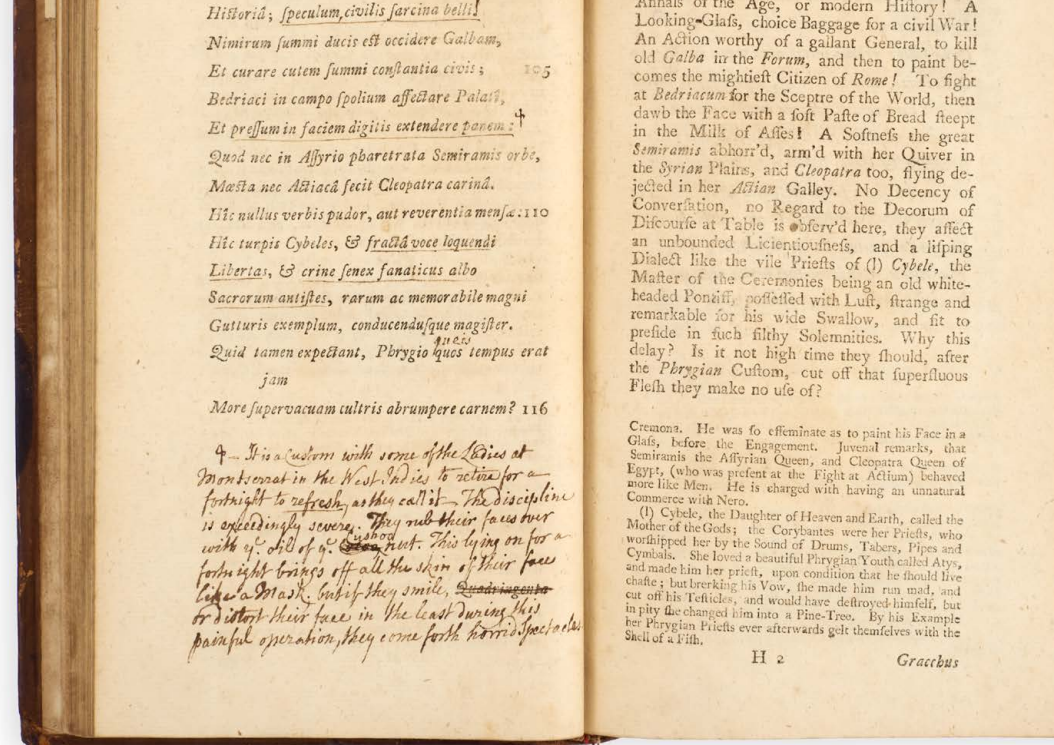 Hiſtoriâ; ſpeculum, civilis ſarcina belli!
Nimirum ſummi ducis eſt occidere Galbam,
Et curare cutem ſummi conſtantia civis; 105
Bedriaci in campo ſpolium affectare Palatî,
Et preſſum in faciem digitis extendere panem:
Quod nec in Aſſyrio pharetrata Semiramis orbe,
Mœſta nec Actiacâ fecit Cleopatra carinâ.
Hîc nullus verbis pudor, aut reverentia menſæ: 110
Hîc turpis Cybeles, & fractâ voce loquendi
Libertas, & crine ſenex fanaticus albo
Sacrorum antiſtes, rarum ac memorabile magni
Gutturis exemplum, conducenduſque magiſter.
queis
Quid tamen expectant, Phrygio quos tempus erat
jam
More ſupervacuam cultris abrumpere carnem? 116
It is a Custom with some of the Ladies at
Montserrat in the West Indies to retire for a
fortnight to refresh, as they call it. The discipline
is exceedingly severe. They rub their faces over
with yᵉ. oil of yᵉ. nut. This lying on for a
fortnight brings off all the skin of their face
like a Mask. but if they smile, Quadringenta
or distort their face in the least during this
painful operation, they come forth horrid spectacles
Annals of the Age, or modern Hiſtory! A
Looking-Glaſs, choice Baggage for a civil War!
An Action worthy of a gallant General, to kill
old Galba in the Forum, and then to paint be-
comes the mightieſt Citizen of Rome! To fight
at Bedriacum for the Sceptre of the World, then
dawb the Face with a ſoft Paſte of Bread ſteept
in the Milk of Aſſes! A Softneſs the great
Semiramis abhorr'd, arm'd with her Quiver in
the Syrian Plains, and Cleopatra too, flying de-
jected in her Actian Galley. No Decency of
Converſation, no Regard to the Decorum of
Diſcourſe at Table is obſerv'd here, they affect
an unbounded Licientiouſneſs, and a liſping
Dialect like the vile Prieſts of (l) Cybele, the
Maſter of the Ceremonies being an old white-
headed Pontiff, poſſeſſed with Luſt, ſtrange and
remarkable for his wide Swallow, and fit to
preſide in ſuch filthy Solemnities. Why this
delay? Is it not high time they ſhould, after
the Phrygian Cuſtom, cut off that ſuperfluous
Fleſh they make no uſe of?
Cremona. He was ſo effeminate as to paint his Face in a
Glaſs, before the Engagement. Juvenal remarks, that
Semiramis the Aſſyrian Queen, and Cleopatra Queen of
Egypt, (who was preſent at the Fight at Actium) behaved
more like Men. He is charged with having an unnatural
Commerce with Nero.
(l) Cybele, the Daughter of Heaven and Earth, called the
Mother of the Gods; the Corybantes were her Prieſts, who
worſhipped her by the Sound of Drums, Tabers, Pipes and
Cymbals. She loved a beautiful Phrygian Youth called Atys,
and made him her prieſt, upon condition that he ſhould live
chaſte; but brerking his Vow, ſhe made him run mad, and
cut off his Teſticles, and would have deſtroyed himſelf, but
in pity ſhe changed him into a Pine-Tree. By his Example
her Phrygian Prieſts ever afterwards gelt themſelves with the
Shell of a Fiſh,
H 2 Gracchus